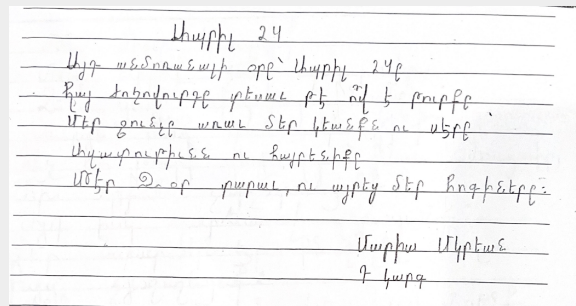 Ապրիլ 24
Այդ անմոռանալի օրը՝ Ապրիլ 24ը
Հայ ժողովուրդը տեսաւ թէ ով է թուրքը
Մեր ջունչը առաւ մեր կեանքն ու սէրը
Ազատութիւնն ու հայրենիքը
Մեր օր տարաւ, ու այրեց մեր հոգիները։
Մարիա Մկրեան
Դ կարգ